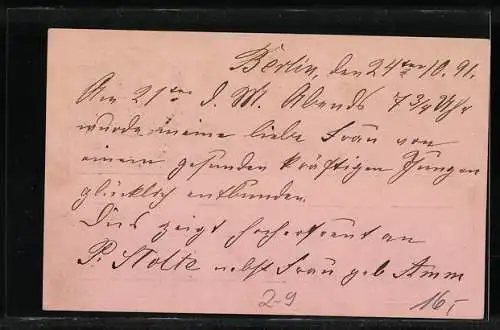 Berlin, den 24ten 10. 91.
Am 21ten d. Mt. Abends 7 3/4 Uhr
wurde meine liebe Frau von
einem gesunden kräftigen Jungen
glücklich entbunden.
Dies zeigt hocherfreut an
P. Nolte nebst Frau geb Amm
2-9
16,-